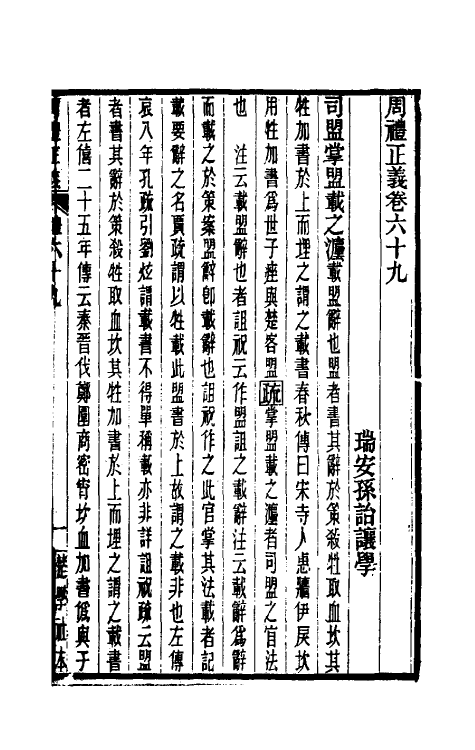 周禮正義卷六十九
瑞安孫詒讓學
司盟掌盟載之灋載盟辭也盟者書其辭於策殺牲取血坎其
牲加書於上而埋之謂之載書春秋傳曰宋寺人惠牆伊戾坎
用牲加書爲世子痤與楚客盟疏掌盟載之灋者司盟之官法
也 注云載盟辭也者詛祝云作盟詛之載辭注云載辭爲辭
而載之於策案盟辭卽載辭也詛祝作之此官掌其法載者記
載要辭之名賈疏謂以牲載此盟書於上故謂之載非也左傳
哀八年孔疏引劉炫謂載書不得單稱載亦非詳詛祝疏云盟
者書其辭於策殺牲取血坎其牲加書於上而埋之謂之載書
者左僖二十五年傳云秦晉伐鄀圍商密宵坎血加書僞與子
周禮正義 卷六十九 一